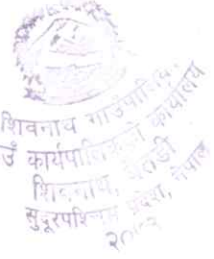 शिवनाथ गाउँपालिका
उँ कार्यपालिकाको कार्यालय
शिवनाथ, बैतडी
सुदूरपश्चिम प्रदेश, नेपाल